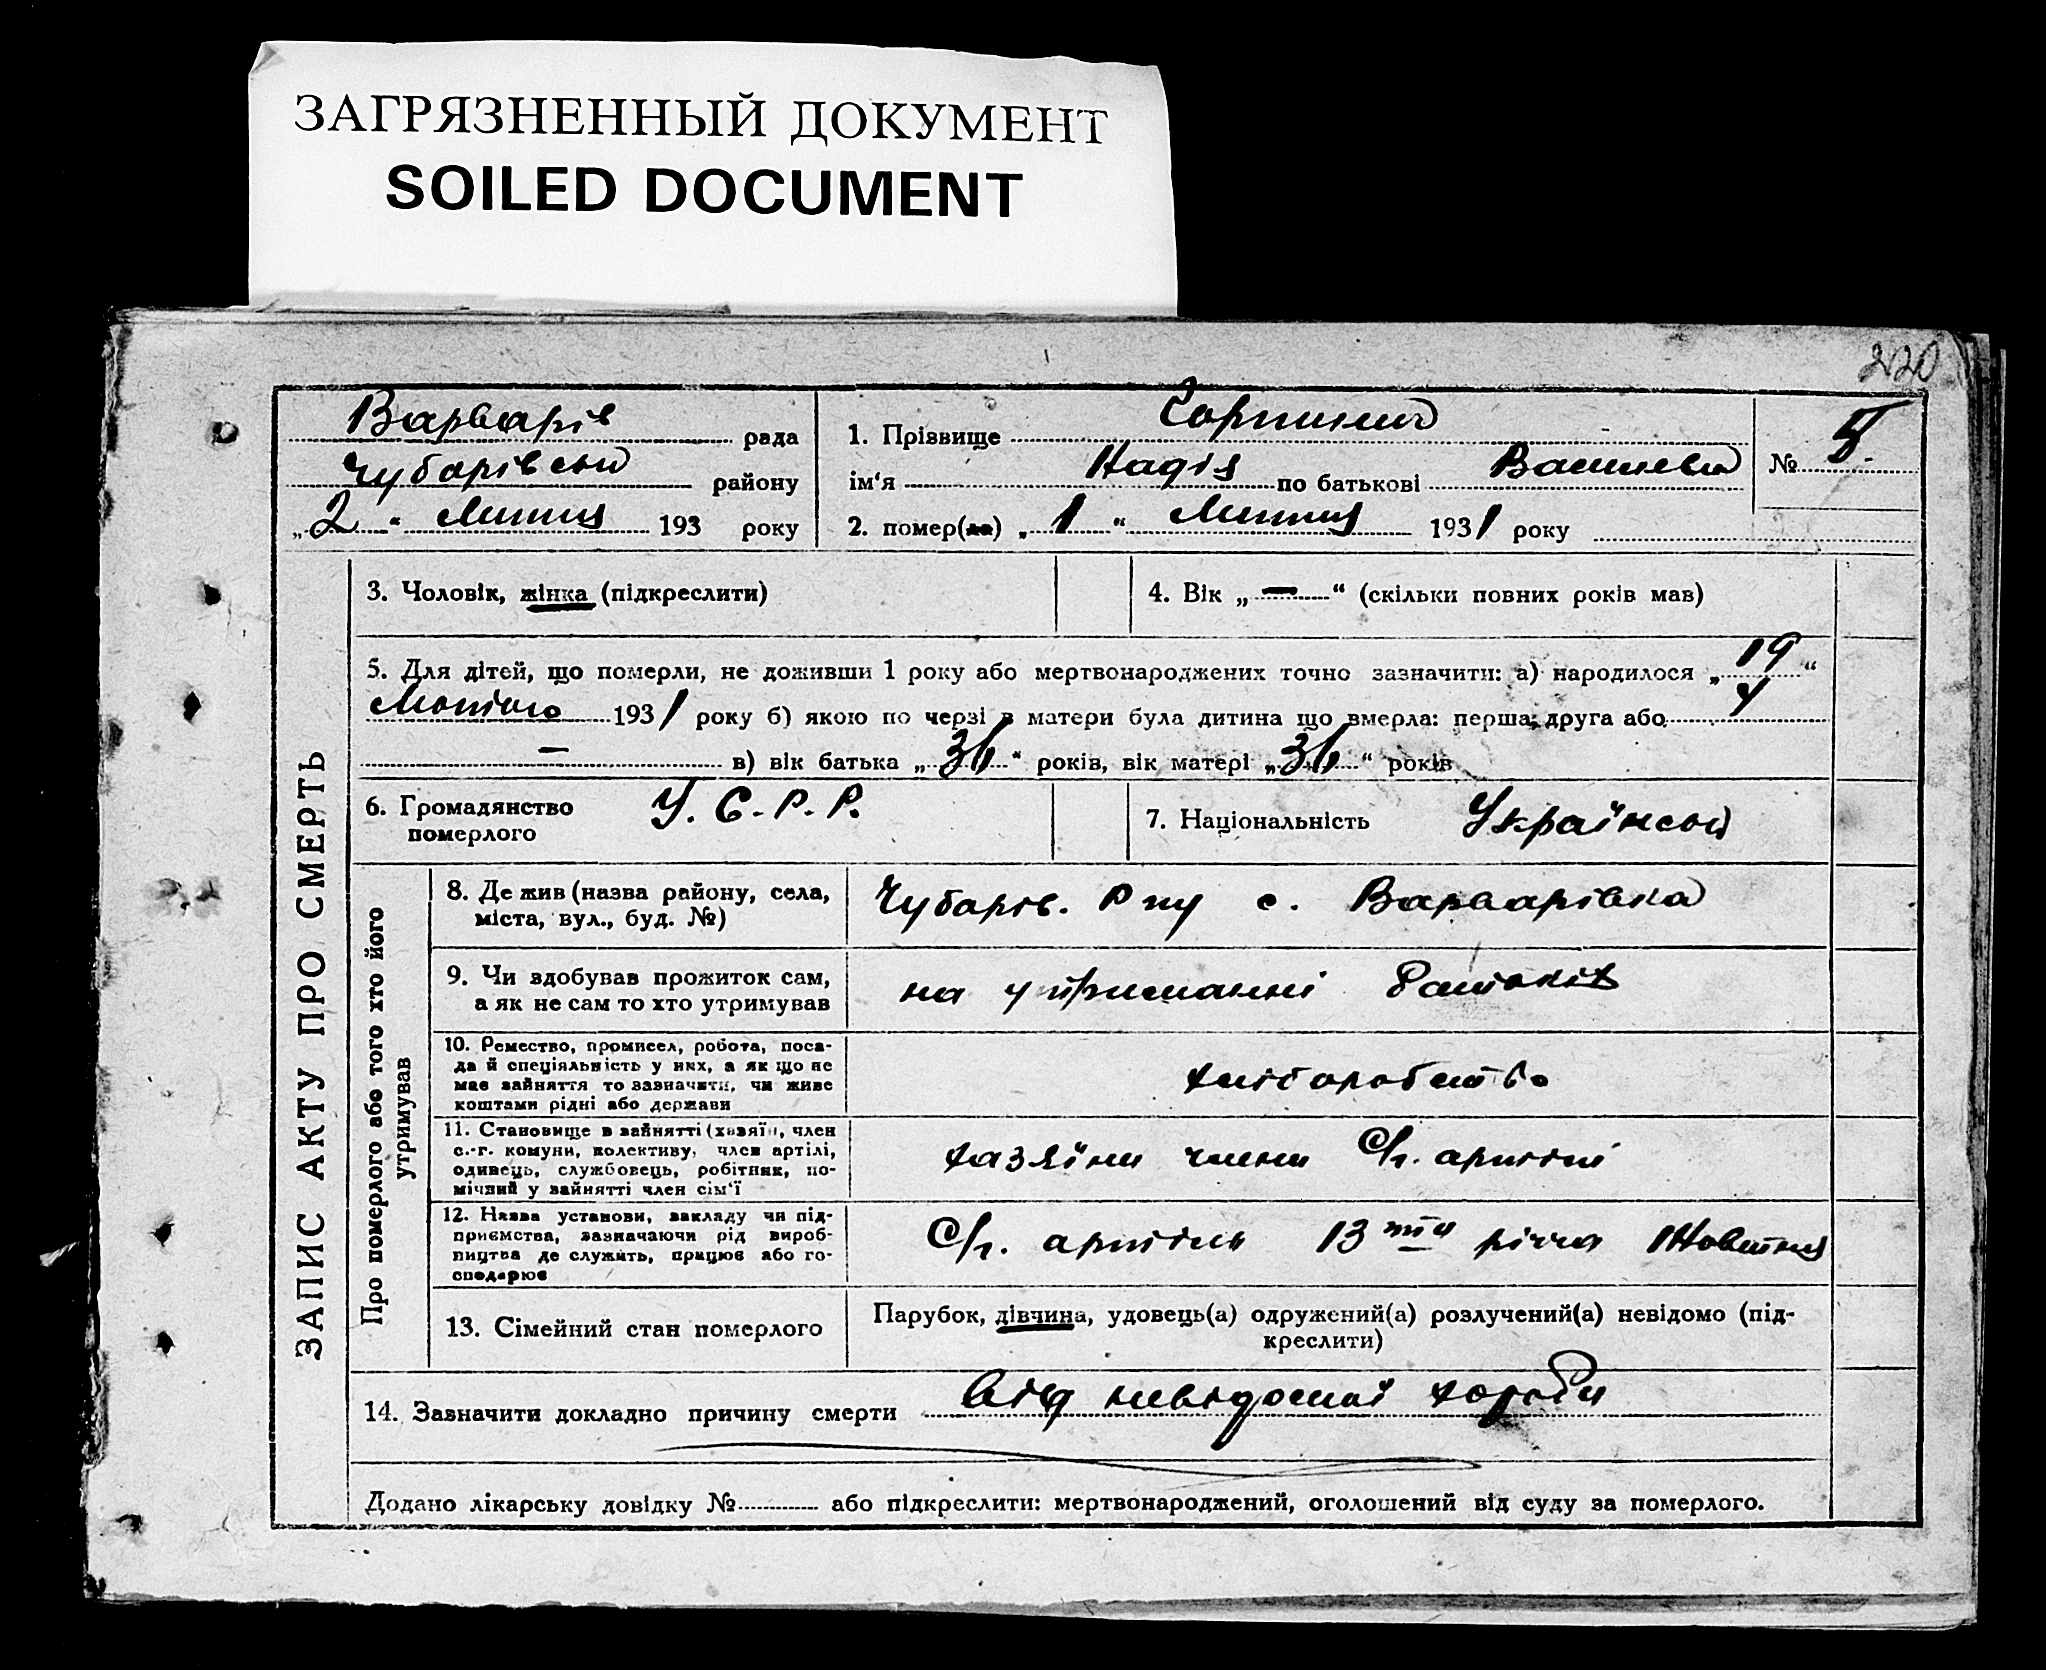 ЗАГРЯЗНЕННЫЙ ДОКУМЕНТ
SOILED DOCUMENT
220
Варварів рада
Чубарівськ району
„2“ Липня 193 року
1. Прізвище
ім‘я Надія по батькові Василева
2. помер(ла) „1“ Липня 1931 року
№ 5.
ЗАПИС АКТУ ПРО СМЕРТЬ
3. Чоловік, жінка (підкреслити)
4. Вік „—“ (скільки повних років мав)
5. Для дітей, що померли, не доживши 1 року або мертвонароджених точно зазначити: а) народилося „19“
Лютого 1931 року б) якою по черзі в матери була дитина що вмерла: перша, друга або 4
— в) вік батька „36“ років, вік матері „36“ років
6. Громадянство
померлого
У. С. Р. Р.
7. Національність
Українськ
Про померлого або того хто його
утримував
8. Де жив (назва району, села,
міста, вул., буд. №)
Чубарів. Р ну с. Варварівка
9. Чи здобував прожиток сам,
а як не сам то хто утримував
на утриманні Батьків
10. Ремество, промисел, робота, поса-
да й спеціяльність у них, а як що не
має зайняття то зазначити, чи живе
коштами рідні або держави
хліборобство
11. Становище в зайнятті (хазяїн, член
с.-г. комуни, колективу, член артілі,
одивець, службовець, робітник, по-
мічний у зайнятті член сім‘ї
хазяїни члени С/г. артілі
12. Назва установи, закладу чи під-
приємства, зазначаючи рід вироб-
ництва де служить, працює або го-
сподарює
С/г. артіль 13 тта річча Жовтня
13. Сімейний стан померлого
Парубок, дівчина, удовець(а) одружений(а) розлучений(а) невідомо (під-
креслити)
14. Зазначити докладно причину смерти Від невідомої хороби
Додано лікарську довідку № або підкреслити: мертвонароджений, оголошений від суду за померлого.